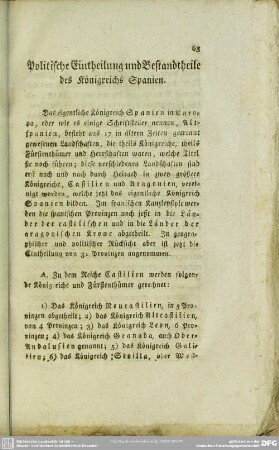 63
Politische Eintheilung und Bestandtheile
des Königreichs Spanien.
Das eigentliche Königreich Spanien in Euro-
pa, oder wie es einige Schriftsteller nennen, Alt-
spanien, besteht aus 17 in ältern Zeiten getrennt
gewesenen Landschaften, die theils Königreiche, theils
Fürstenthümer und Herrschaften waren, welche Titel
sie noch führen; diese verschiedenen Landschaften sind
erst nach und nach durch Heirath in zwey größere
Königreiche, Castilien und Aragonien, verei-
nigt worden, welche jetzt das eigentliche Königreich
Spanien bilden. Im spanischen Kanzleystyle wer-
den die spanischen Provinzen noch jetzt in die Län-
der der castilischen und in die Länder der
aragonischen Krone abgetheilt. In geogra-
phischer und politischer Rücksicht aber ist jetzt die
Eintheilung von 31 Provinzen angenommen.
A. Zu dem Reiche Castilien werden folgen-
de König reiche und Fürstenthümer gerechnet:
1) Das Königreich Neucastilien, in 5 Pro-
vinzen abgetheilt; 2) das Königreich Altcastilien,
von 4 Provinzen; 3) das Königreich Leon, 6 Pro-
vinzen; 4) das Königreich Granada, auch Ober-
Andalusien genannt; 5) das Königreich Gali-
cien; 6) das Königreich Sevilla, oder West-